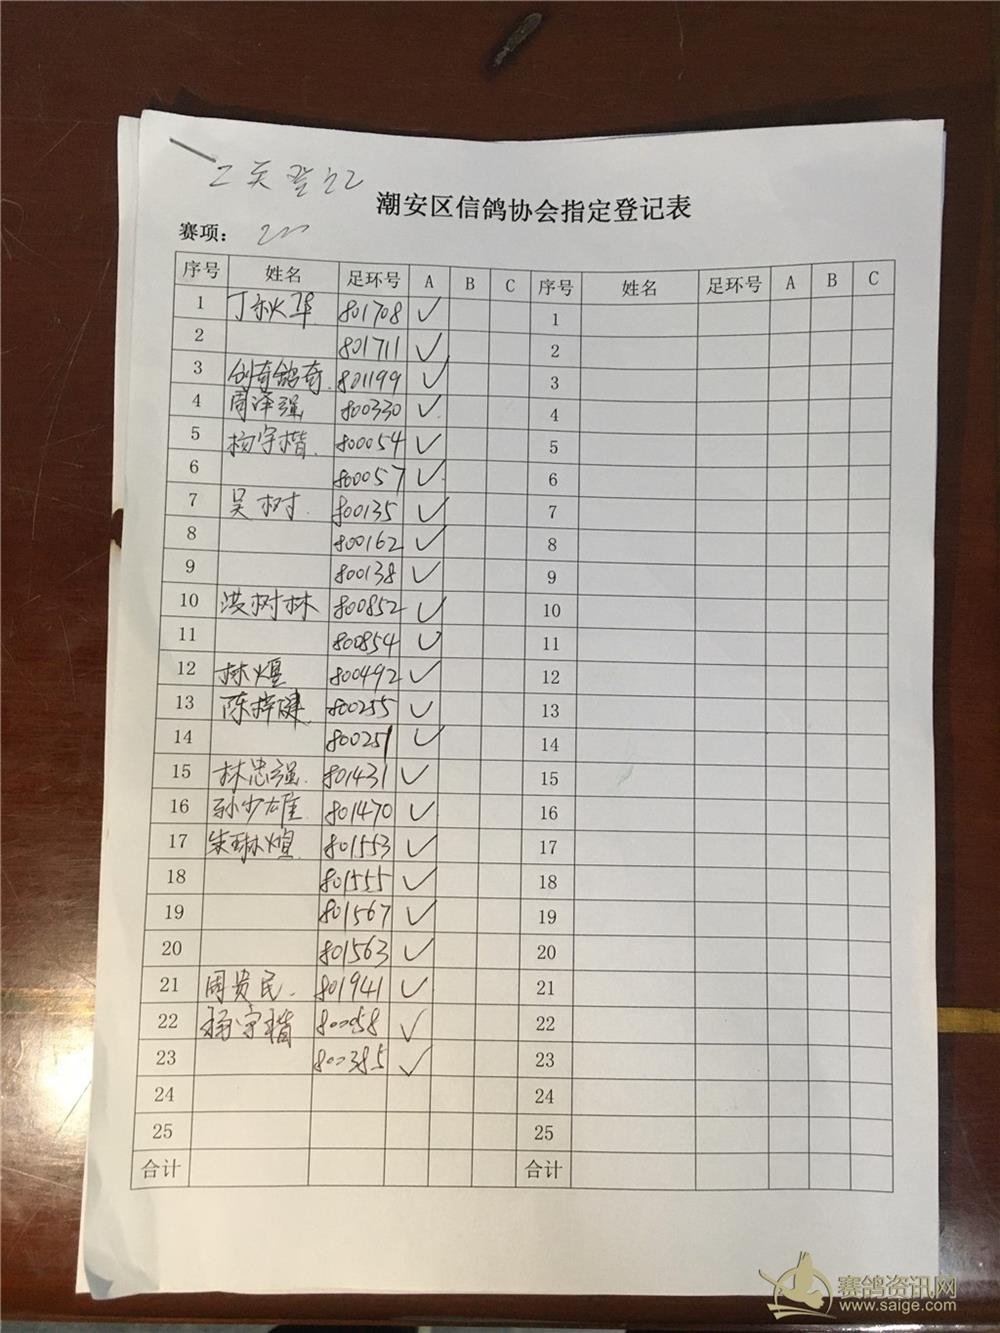 2关登记
潮安区信鸽协会指定登记表
赛项：
序号 姓名 足环号 A B C 序号 姓名 足环号 A B C
1 丁秋华 801708 ✓ 1
2 801711 ✓ 2
3 创奇鸽奇 801199 ✓ 3
4 周泽强 800330 ✓ 4
5 杨宇楷 800054 ✓ 5
6 800057 ✓ 6
7 吴树 800135 ✓ 7
8 800162 ✓ 8
9 800138 ✓ 9
10 洪树林 800852 ✓ 10
11 800854 ✓ 11
12 林煜 800492 ✓ 12
13 陈梓健 800255 ✓ 13
14 800251 ✓ 14
15 林忠强 801431 ✓ 15
16 孙少雄 801470 ✓ 16
17 朱琳煊 801553 ✓ 17
18 801555 ✓ 18
19 801567 ✓ 19
20 801563 ✓ 20
21 周贵民 801941 ✓ 21
22 杨宇楷 800058 ✓ 22
23 800385 ✓ 23
24 24
25 25
合计 合计
赛鸽资讯网
www.saige.com